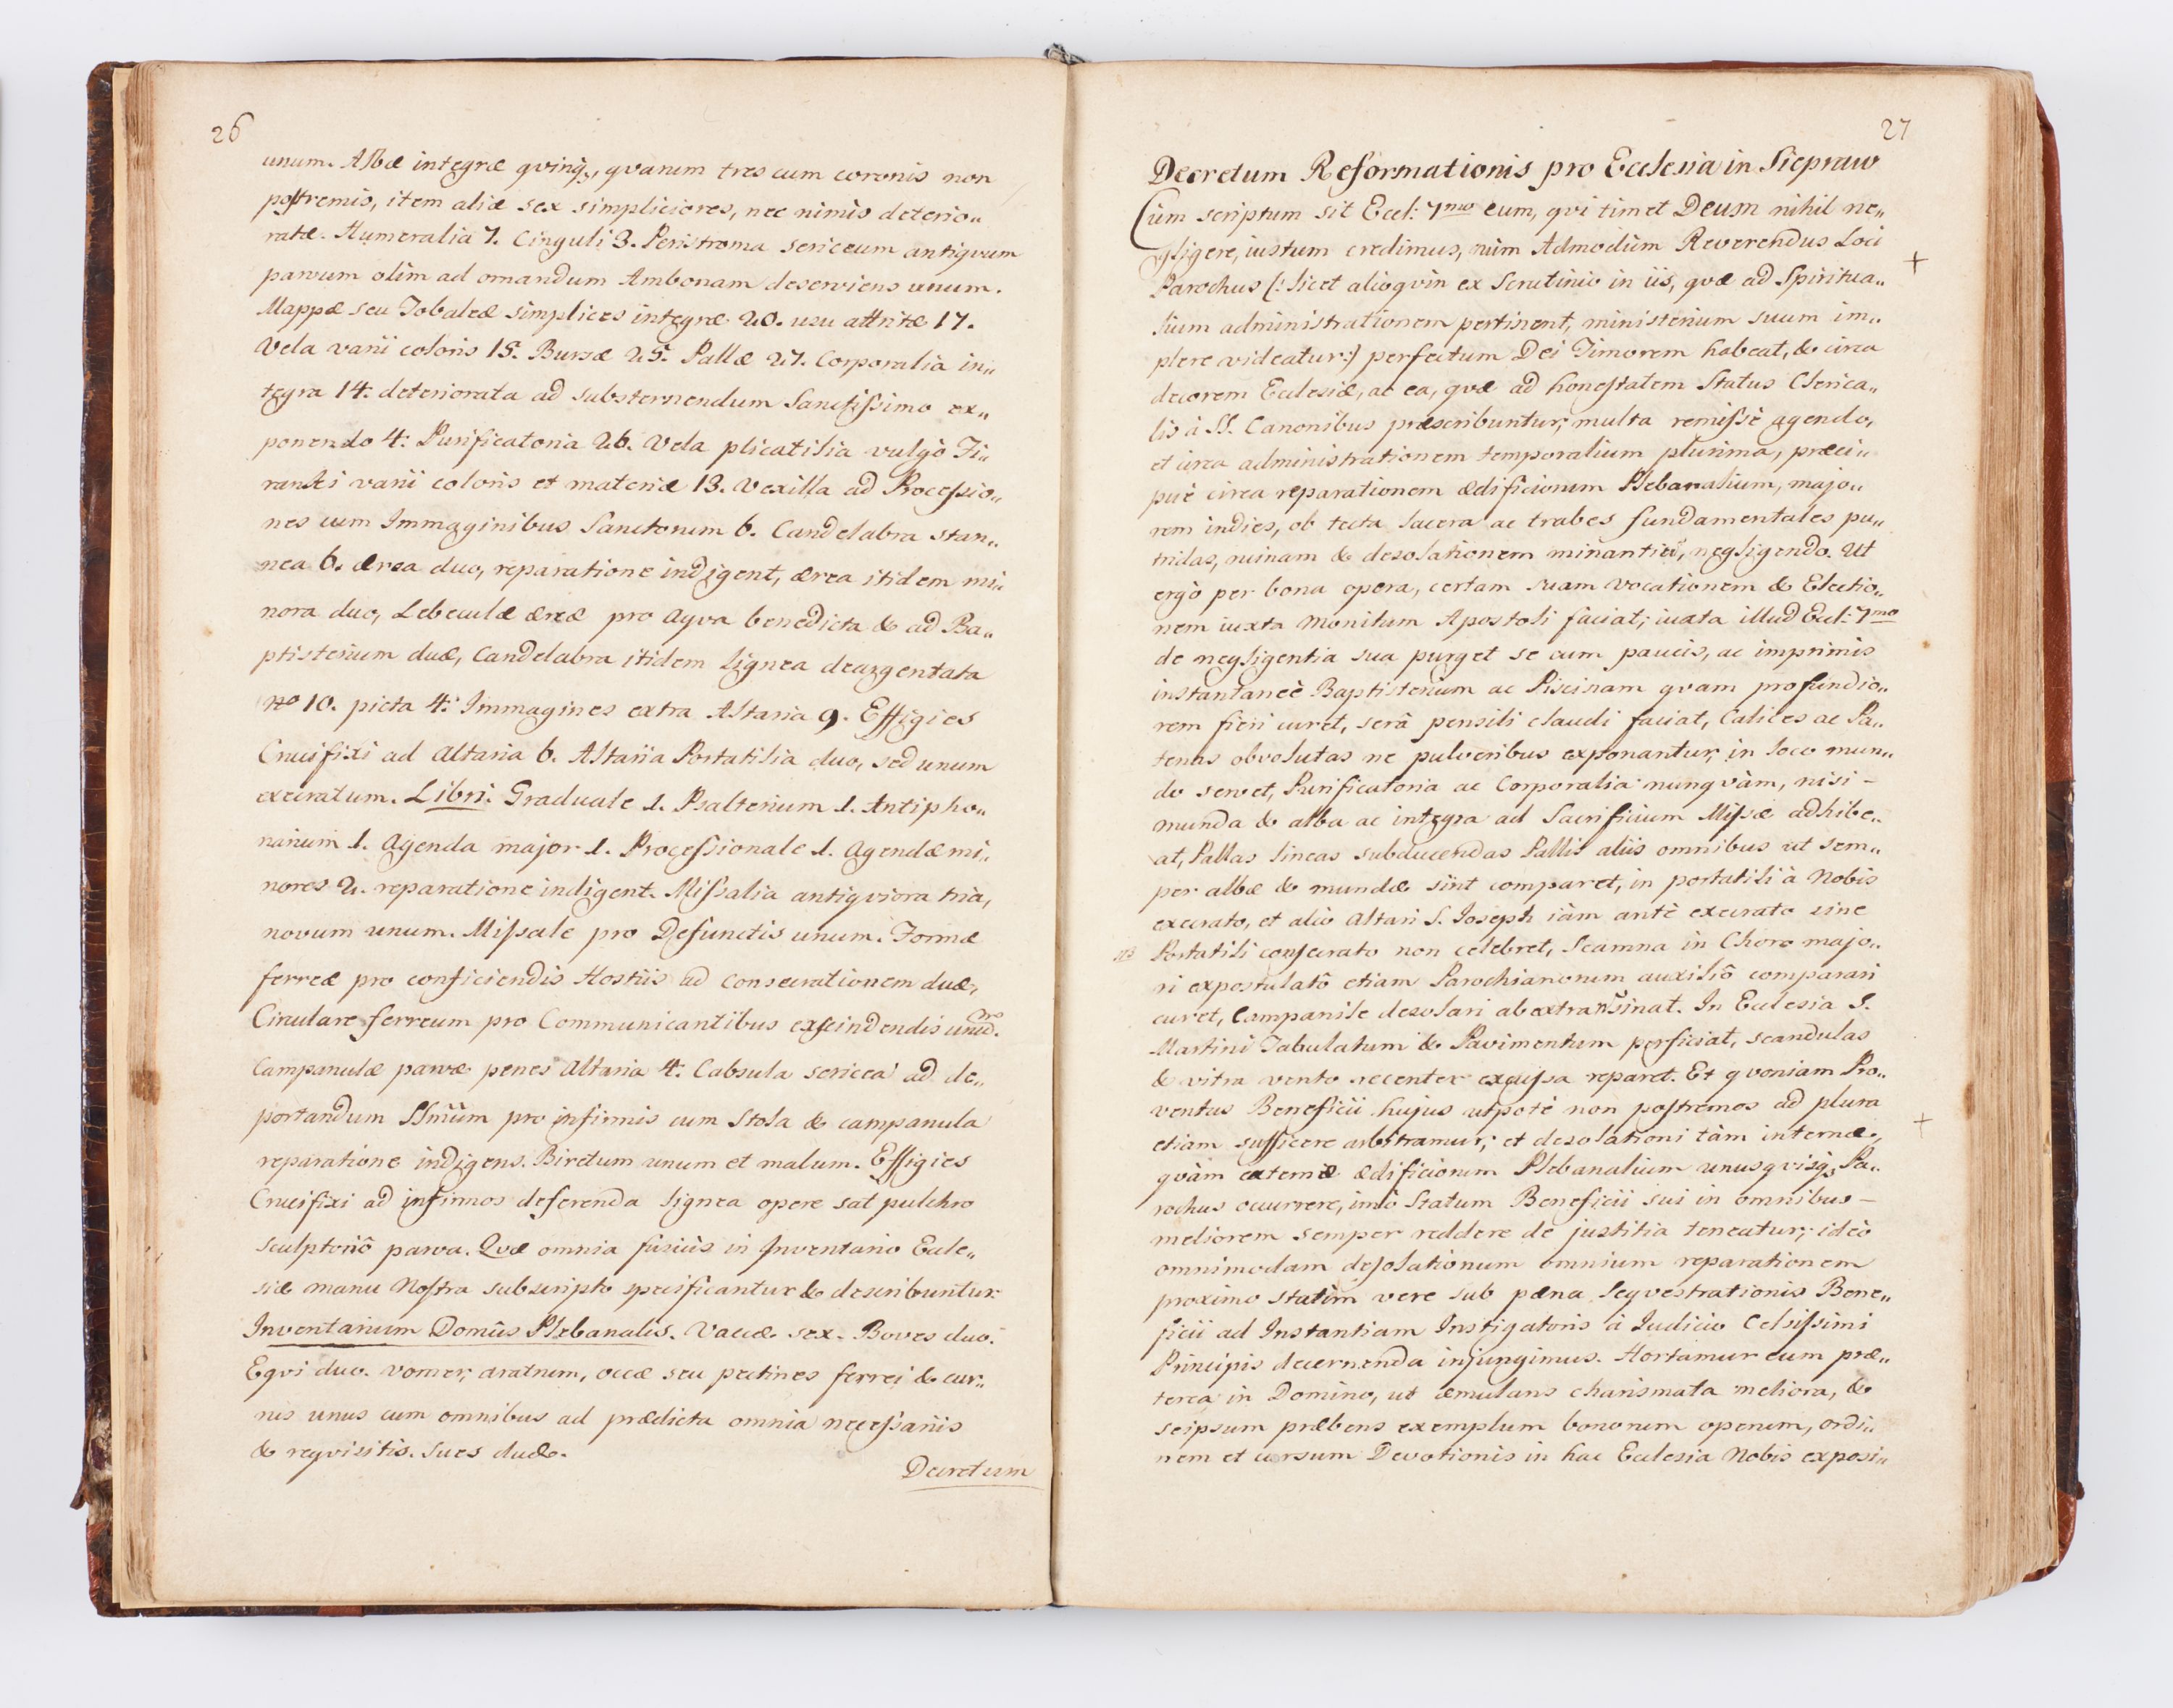 26
unum. Albæ integræ qvinq;, qvarum tres cum coronis non
postremis, item aliæ sex simpliciores, nec nimis deterio„
ratæ. Humeralia 7. Cinguli 3. Peristroma sericeum antiqvum
parvum olim ad ornandum Ambonam deserviens unum.
Mappæ seu Tobaleæ simplices integræ 20. usu attritæ 17.
Vela varii coloris 15. Bursæ 25. Pallæ 27. Corporalia in„
tegra 14. deteriorata ad substernendum Sanctissimo ex„
ponendo 4. Purificatoria 26. Vela plicatilia vulgò Fi„
ranki varii coloris et materiæ 13. Vexilla ad Processio„
nes cum Immaginibus Sanctorum 6. Candelabra stan„
nea 6. ærea duo, reparatione indigent, ærea itidem mi„
nora duo, Lebeculæ æreæ pro Aqva benedicta & ad Ba„
ptisterium duæ, Candelabra itidem lignea deargentata
no 10. picta 4. Immagines extra Altaria 9. Effigies
Crucifixi ad Altaria 6. Altaria Portatilia duo, sed unum
execratum. Libri: Graduale 1. Psalterium 1. Antipho„
narium 1. Agenda major 1. Processionale 1. Agendæ mi„
nores 2. reparatione indigent. Missalia antiqviora tria,
novum unum. Missale pro Defunctis unum. Formæ
ferreæ pro conficiendis Hostiis ad Consecrationem duæ,
Circulare ferreum pro Communicantibus exscindendis unum.
Campanulæ parvæ penes Altaria 4. Cabsula sericea ad de„
portandum SSmum pro infirmis cum Stola & campanula
reparatione indigens. Biretum unum et malum. Effigies
Crucifixi ad infirmos deferenda lignea opere sat pulchro
sculptoriô parva. Qvæ omnia fusiùs in Inventario Eccle„
siæ manu Nostra subscripto specificantur & describuntur.
Inventarium Domûs Plebanalis. Vaccæ sex. Boves duo.
Eqvi duo. Vomer, aratrum, occæ seu pectines ferrei & cur„
rus unus cum omnibus ad prædicta omnia necessariis
& reqvisitis. Sues duæ.
Decretum
27
Decretum Reformationis pro Ecclesia in Siepraw
Cùm scriptum sit Eccl: 7mo eum, qvi timet Deum nihil ne„
gligere, iustum credimus, cùm Admodùm Reverendus Loci
Parochus (: licet alioqvin ex Scrutinio in iis, qvæ ad Spiritua„
lium administrationem pertinent, ministerium suum im„
plere videatur:) perfectum Dei Timorem habeat, & circa
decorem Ecclesiæ, ac ea, qvæ ad honestatem Status Clerica„
lis à SS. Canonibus præscribuntur, multa remissè agendo,
et circa administrationem temporalium plurima, præci„
puè circa reparationem ædificiorum Plebanalium, majo„
rem indies, ob tecta lacera ac trabes fundamentales pu„
tridas, ruinam & desolationem minantiũ, negligendo. Ut
ergò per bona opera, certam suam Vocationem & Electio„
nem iuxta Monitum Apostoli faciat; iuxta illud Eccl: 7mo
de negligentia sua purget se cum paucis, ac imprimis
instantaneè Baptisterium ac Piscinam qvam profundio„
rem fieri curet, serâ pensili claudi faciat, Calices ac Pa„
tenas obvolutas ne pulveribus exponantur, in loco mun„
do servet, Purificatoria ac Corporalia nunqvàm, nisi –
munda & alba ac integra ad Sacrificium Missæ adhibe„
at, Pallas lineas subducendas Pallis aliis omnibus ut sem„
per albæ & mundæ sint comparet, in portatili à Nobis
execrato, et alio Altari S. Joseph iàm antè execrato sine
Portatili consecrato non celebret, Scamna in Choro majo„
ri expostulatô etiam Parochianorum auxiliô comparari
curet, Campanile desolari ab extra sinat. In Ecclesia S.
Martini Tabulatum & Pavimentum perficiat, scandulas
& vitra vento recenter excussa reparet. Et qvoniam Pro„
ventus Beneficii hujus utpotè non postremos ad plura
etiam sufficere arbitramur; et desolationi tàm internæ,
qvàm externæ ædificiorum Plebanalium unusqvisq; Pa„
rochus occurrere, imò Statum Beneficii sui in omnibus –
meliorem semper reddere de justitia teneatur; ideò
omnimodam desolationum omnium reparationem
proximo statìm vere sub pæna Seqvestrationis Bene„
ficii ad Instantiam Instigatoris à Iudicio Celsissimi
Principis decernenda injungimus. Hortamur eum præ„
terea in Domino, ut æmulans charismata meliora, &
seipsum præbens exemplum bonorum operum, ordi„
nem et cursum Devotionis in hac Ecclesia Nobis exposi„